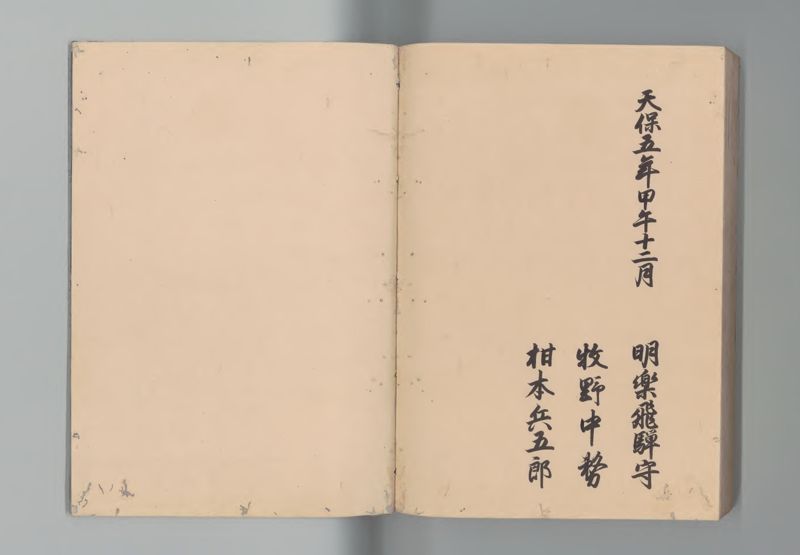 天保五年甲午十二月
明楽飛騨守
牧野中務
柑本兵五郎